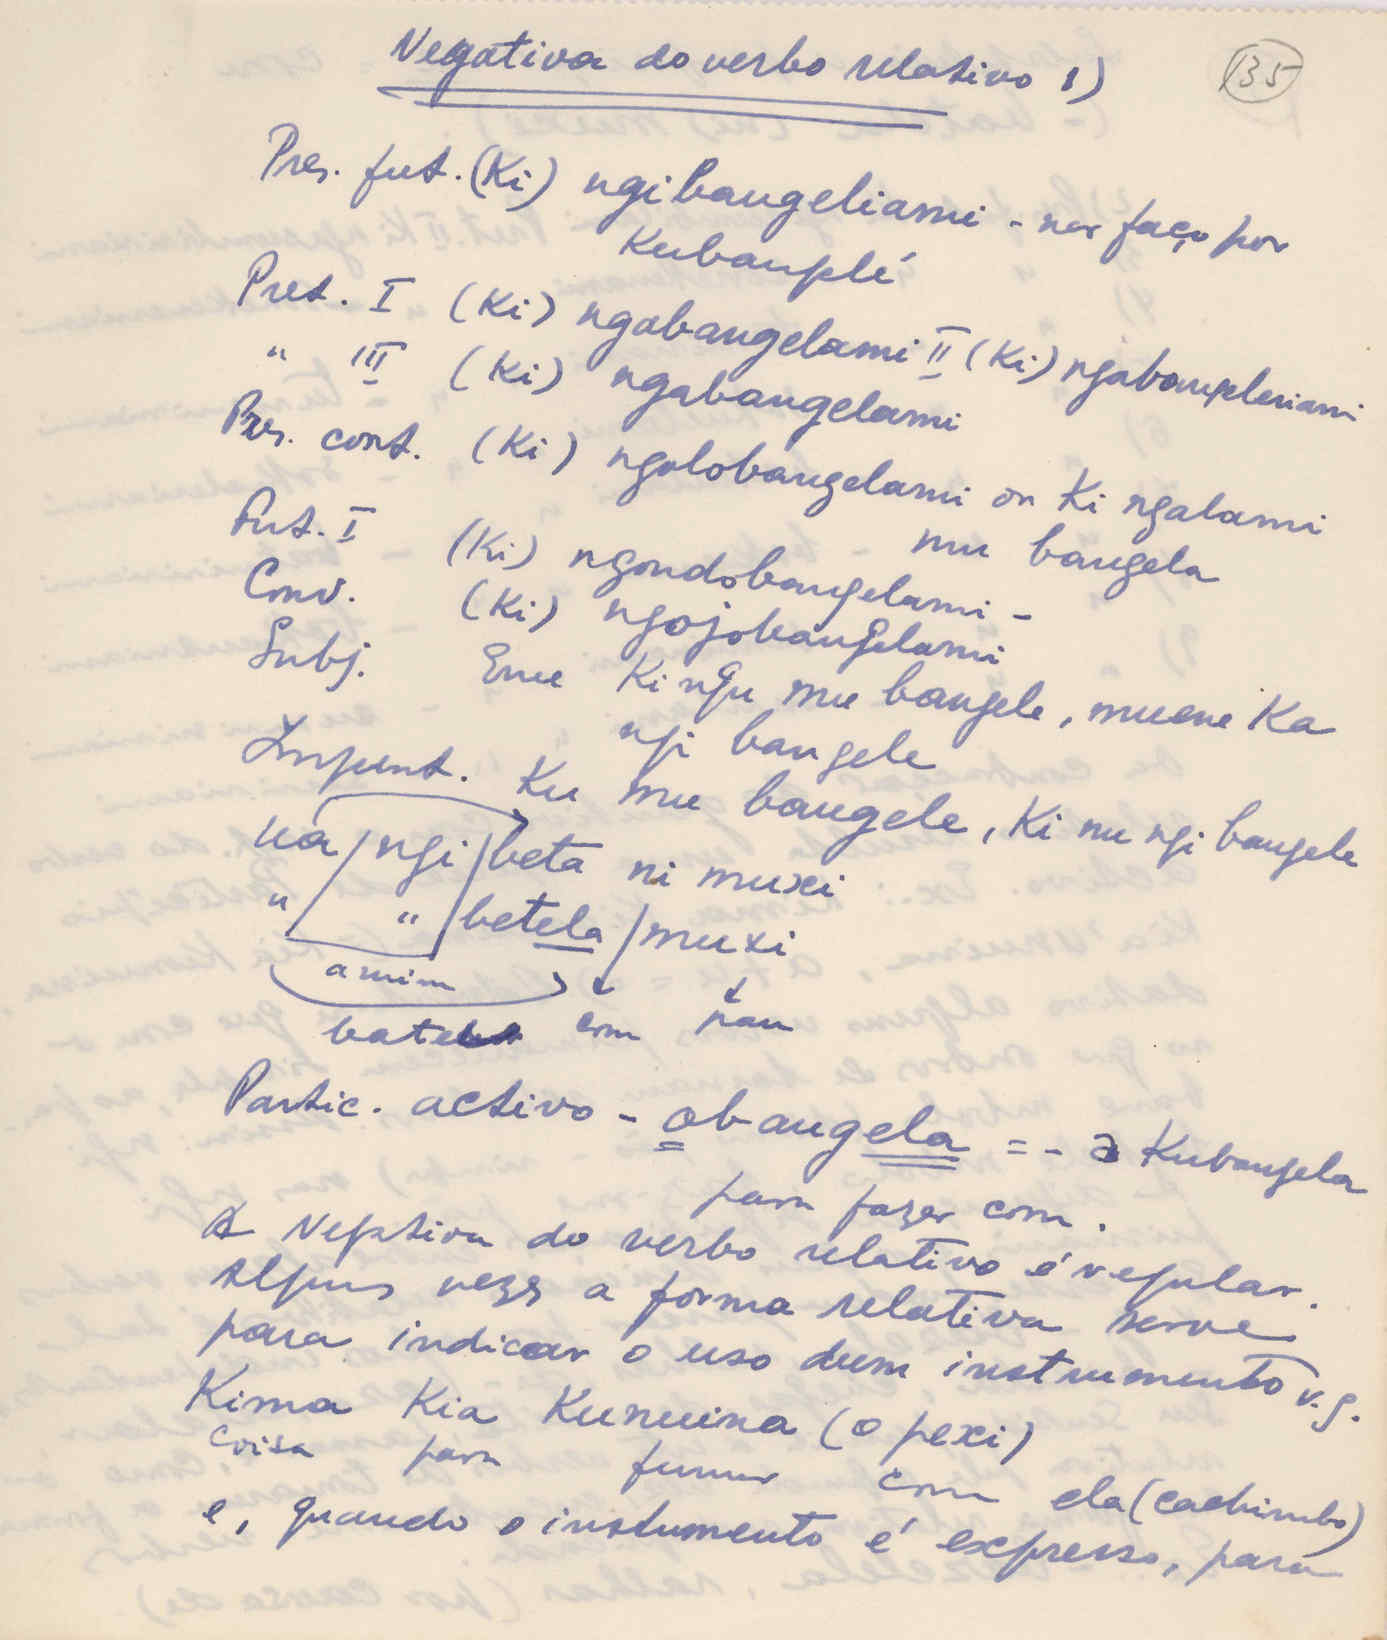 Negativa do verbo relativo 1) 135
Pres. fut. (Ki) ngibangeliami - não faço por
Kubangelé
Pret. I (Ki) ngabangelami II (Ki) ngabangeleniami
" III (Ki) ngabangelami
Pres. cont. (Ki) ngalobangelami ou Ki ngalami
mu bangela
Fut. I (Ki) ngondobangelami -
Conv. (Ki) ngojobangelami
Subj. Eme Ki ngu mu bangele, muene Ka
ngi bangele
Imperat. Ku mu bangele, Ki nu ngi bangele
ua / ngi / beta ni muxi
" " / betela / muxi
a mim
bateu com pau
Partic. activo - obangela = - a Kubangela
para fazer com.
A Negativa do verbo relativo é regular.
Algumas vezes a forma relativa serve
para indicar o uso dum instrumento v.g.
Kima Kia Kunuina (o pexi)
Coisa para fumar com ela (cachimbo)
e, quando o instrumento é expresso, para